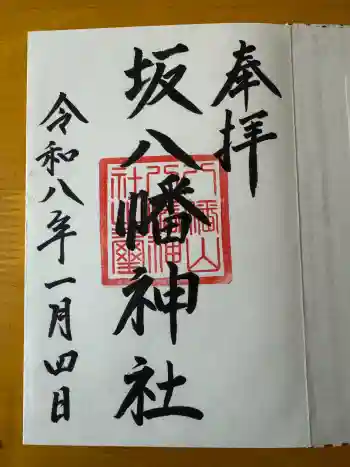 奉拝
坂八幡神社
令和八年一月四日